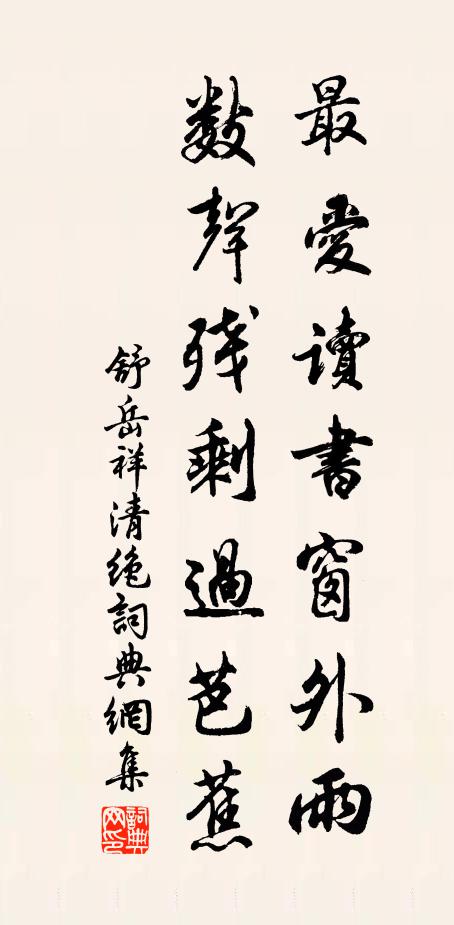 最愛讀書窗外雨
數聲殘剩過芭蕉
舒岳祥清絕詞典網集
詞典網印